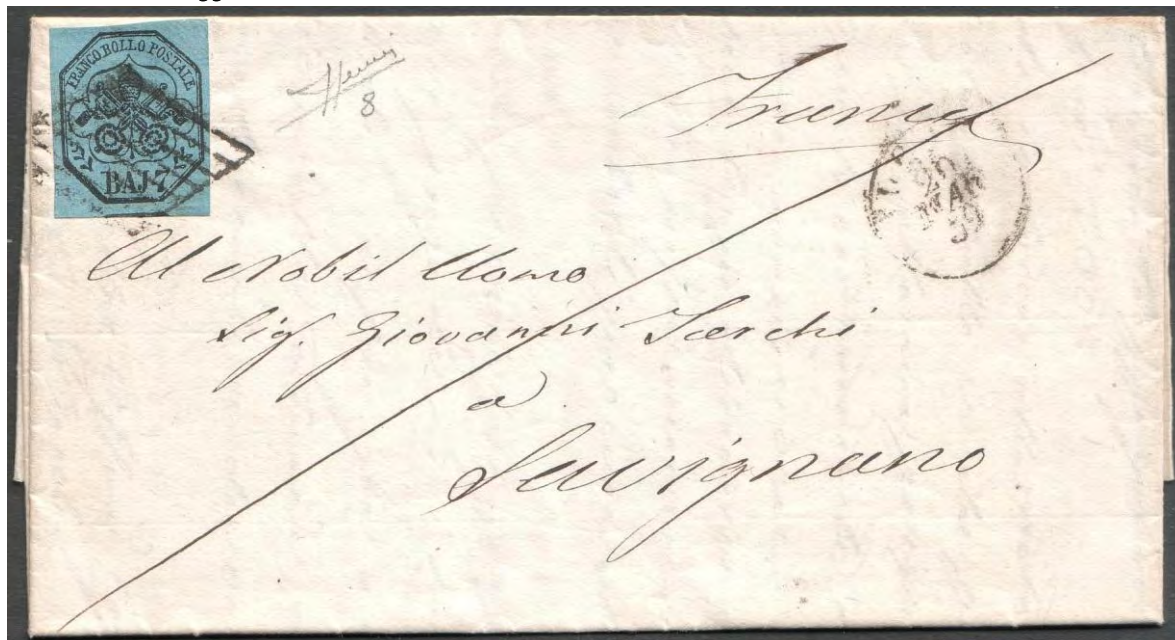 FRANCO BOLLO POSTALE
BAJ 7
8
Franca
20
MAR
59
Al Nobil Uomo
Sig. Giovanni
a
Savignano